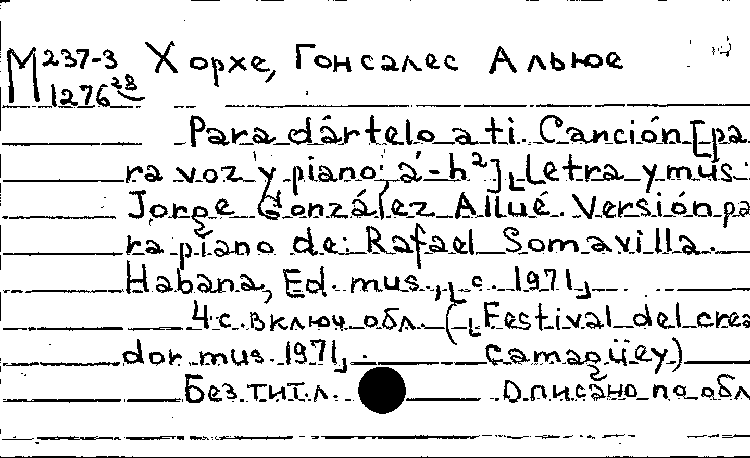 М 237-3 Хорхе, Гонсалес Альюе
1276 28
Para dártelo a ti. Canción [pa
ra voz y piano, a'-h²]. Letra y mús.
Jorge González Allué. Versión pa
ra piano de: Rafael Somavilla.
Habana, Ed. mus., [c. 1971]
4 с. включ. обл. ([Festival del crea
dor mus. 1971]. Camagüey)
Без. тит. л. Описано по обл